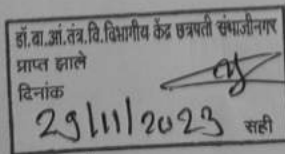 डॉ.बा.आं.तंत्र.वि.विभागीय केंद्र छत्रपती संभाजीनगर
प्राप्त झाले
दिनांक
29/11/2023 सही